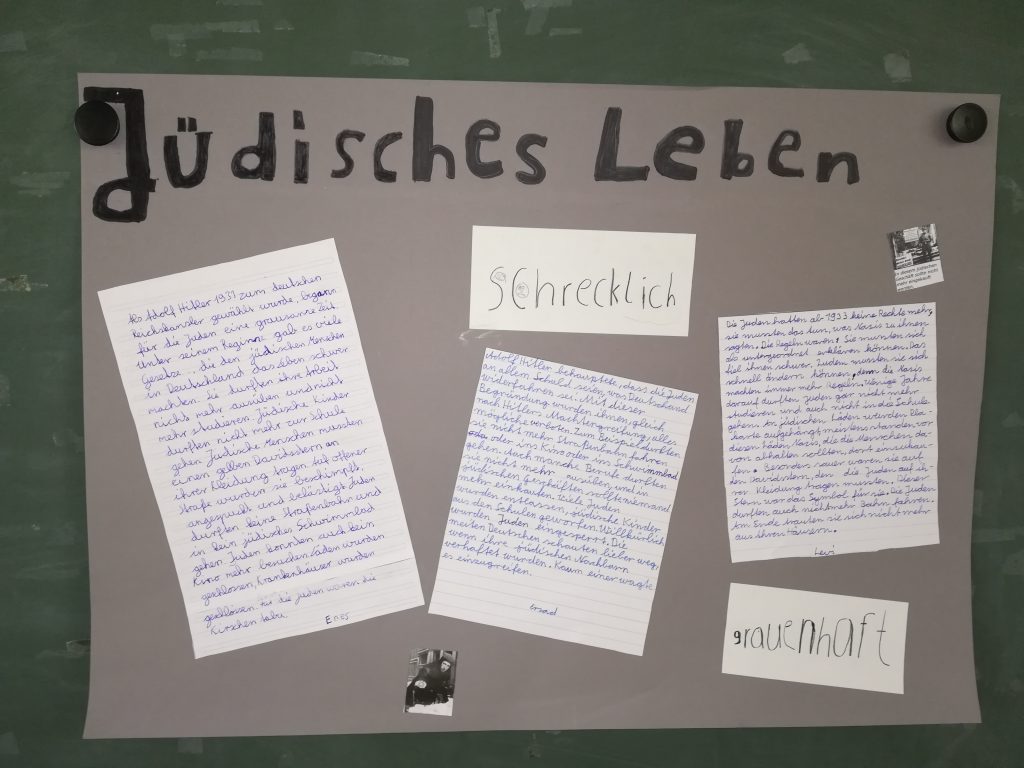 Jüdisches Leben
Als Adolf Hitler 1931 zum deutschen
Reichskanzler gewählt wurde, begann
für die Juden eine grausame Zeit.
Unter seinem Regime gab es viele
Gesetze, die den jüdischen Menschen
in Deutschland das leben schwer
machten. Sie durften ihre Arbeit
nicht mehr ausüben und nicht
mehr studieren. Jüdische Kinder
durften nicht mehr zur Schule
gehen. Jüdische Menschen mussten
einen gelben Davidstern an
ihrer Kleidung tragen. Auf offener
Straße wurden sie beschimpft,
angespuckt und belästigt. Juden
durften keine Straßenbahn und
in kein jüdisches Schwimmbad
gehen. Juden konnten auch kein
Kino mehr besuchen. Läden wurden
geschlossen, Krankenhäuser wurden
geschlossen. Für die Juden waren die
Kirschen tabu.
Enes
schrecklich
Adolf Hitler behauptete, dass die Juden
an allem Schuld seien, was Deutschland
widerfahren sei. Mit dieser
Begründung wurden ihnen gleich
nach Hitlers Machtergreifung, alles
mögliche verboten. Zum Beispiel durften
sie nicht mehr Straßenbahn fahren
oder ins Kino oder ins Schwimmbad
gehen. Auch manche Berufe durften
sie nicht mehr ausüben und in
jüdischen Geschäften sollte niemand
mehr einkaufen. Viele Juden
wurden entlassen, jüdische Kinder
aus den Schulen geworfen. Willkürlich
wurden Juden eingesperrt. Die
meisten Deutschen schauten lieber weg,
wenn ihre jüdischen Nachbarn
verhaftet wurden. Kaum einer wagte
es einzugreifen.
In diesem jüdischen
Geschäft sollte nicht
mehr eingekauft
werden.
Die Juden hatten ab 1933 keine Rechte mehr,
sie mussten das tun, was Nazis zu ihnen
sagten. Die Regeln waren: Sie mussten sich
als untergeordnet erklären können. Das
fiel ihnen schwer. Juden mussten sie sich
schnell ändern können, denn die Nazis
machten immer mehr Regeln. Wenige Jahre
darauf durften Juden gar nicht mehr
studieren und auch nicht in die Schule
gehen. An jüdischen Läden wurden Pla-
karte aufgehängt meistens standen vor
diesen Läden Nazis, die die Menschen da-
von abhalten sollten, dort einzukau-
fen. Besonders sauer waren sie auf
den Davidstern, den die Juden auf ih-
rer Kleidung tragen mussten. Dieser
Stern war das Symbol für sie. Die Juden
durften auch nicht mehr Bahn fahren.
Am Ende trauten sie sich nicht mehr
aus ihren Häusern.
Levi
grauenhaft